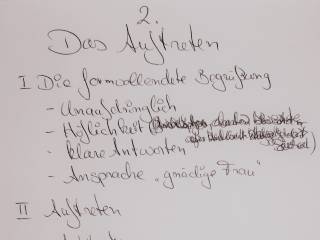 2.
Das Auftreten
I Die formvollendete Begrüßung
- Unaufdringlich
- Höflichkeit (
- klare Antworten
- Ansprache „gnädige Frau"
II Auftreten